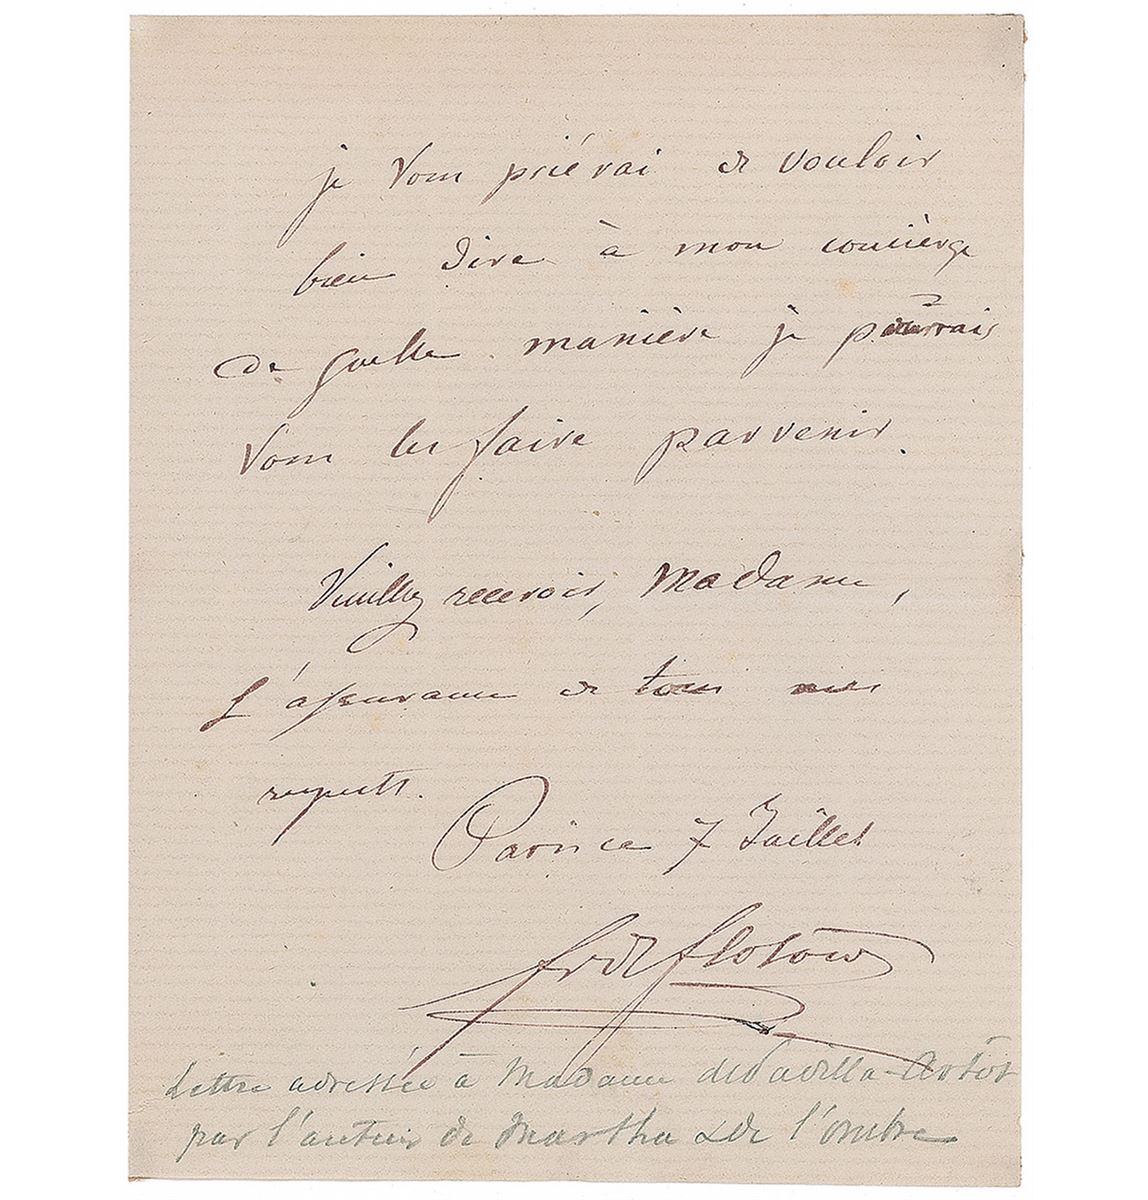 je vous priérai de vouloir
bien dire à mon concièrge
de quelle manière je pourrais
vous les faire parvenir.
Veuillez recevoir, Madame,
l'assurance de tous mes
respects.
Paris ce 7 Juillet
fr de flotow
Lettre adressée à Madame de Padilla-Artôt
par l'auteur de Martha & de l'ombre